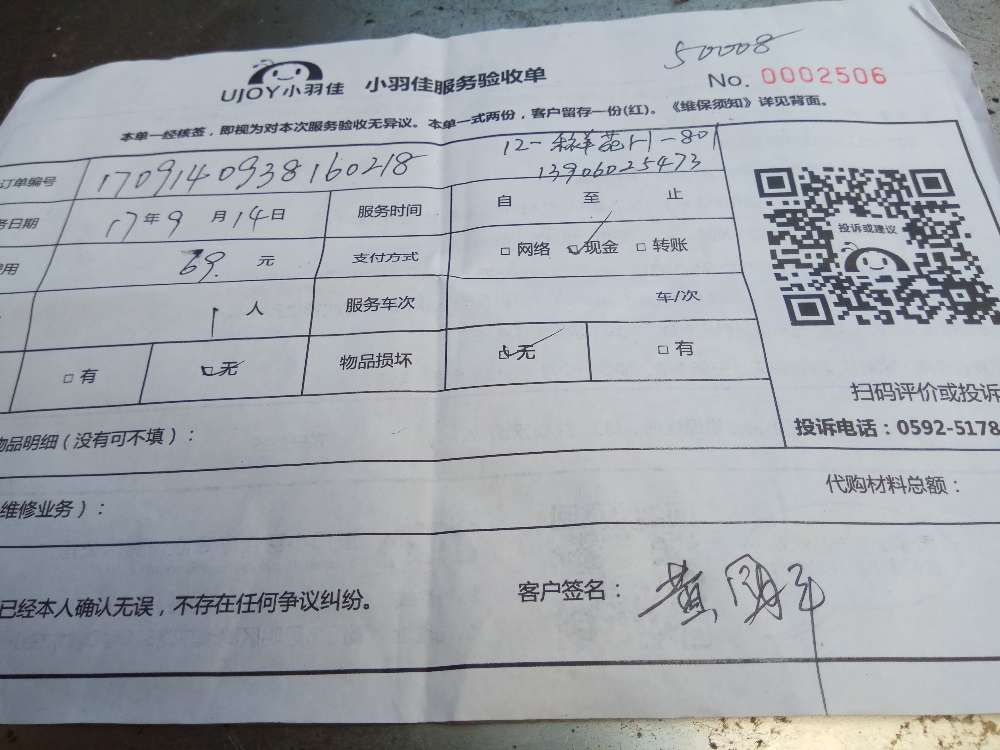 50008
UJOY小羽佳 小羽佳服务验收单 No. 0002506
本单一经核签，即视为对本次服务验收无异议。本单一式两份，客户留存一份(红)。《维保须知》详见背面。
订单编号 170914 0938 160218 12-
13906025473
务日期 17年9月14日 服务时间 自 至 止
费用 69. 元 支付方式 □ 网络 □ 现金 □ 转账
1 人 服务车次 车/次
□ 有 □ 无 物品损坏 □ 无 □ 有
投诉或建议
扫码评价或投诉
投诉电话：0592-5178
物品明细（没有可不填）：
维修业务）： 代购材料总额：
已经本人确认无误，不存在任何争议纠纷。 客户签名：黄